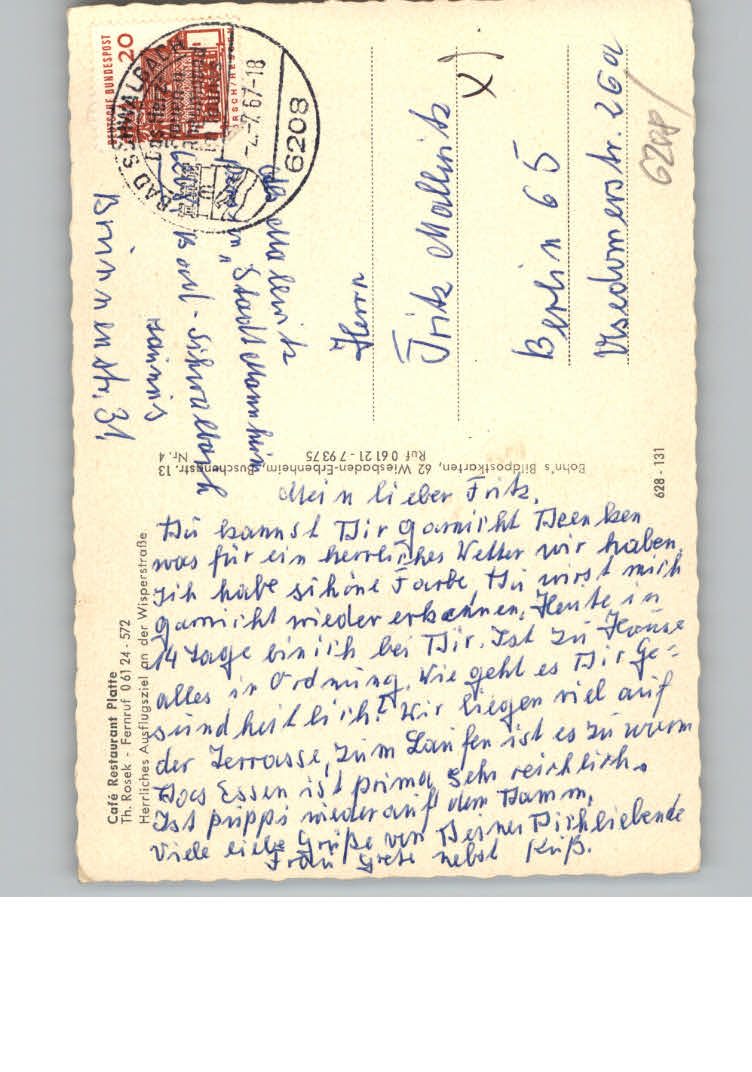 Café Restaurant Platte
Th. Rosek - Fernruf 0 61 24 - 572
Herrliches Ausflugsziel an der Wisperstraße
Mein lieber Fritz,
Du kannst Dir garnicht Deenken
was für ein herrliches Wetter wir haben,
Ich habe schöne Farbe Du wirst mich
garnicht wieder erkennen, Heute in
14 Tage bin ich bei Dir. Ist zu Hause
alles in Ordnung. Wie geht es Dir Ge=
sundheitlich? Wir liegen viel auf
der Terrasse, zum Laufen ist es zu warm
Das Essen ist prima sehr reichlich.
Ist pippi wieder auf dem Damm.
Viele liebe Grüße von Deiner Dich liebende
Frau Grete nebst Kuß.
Bohn's Bildpostkarten, 62 Wiesbaden-Erbenheim, Buschengstr. 13
Ruf 0 61 21 - 7 93 75
Nr. 4
628 - 131
DEUTSCHE BUNDESPOST
20
BAD SCHWALBACH
-2.-7.67-18
6208
Mallwitz
"Stadt Mannheim
Bad-Schwalbach
Taunus
Brunnenstr. 31
Herrn
Fritz Mallwitz
Berlin 65
Usedomerstr. 26a
6208